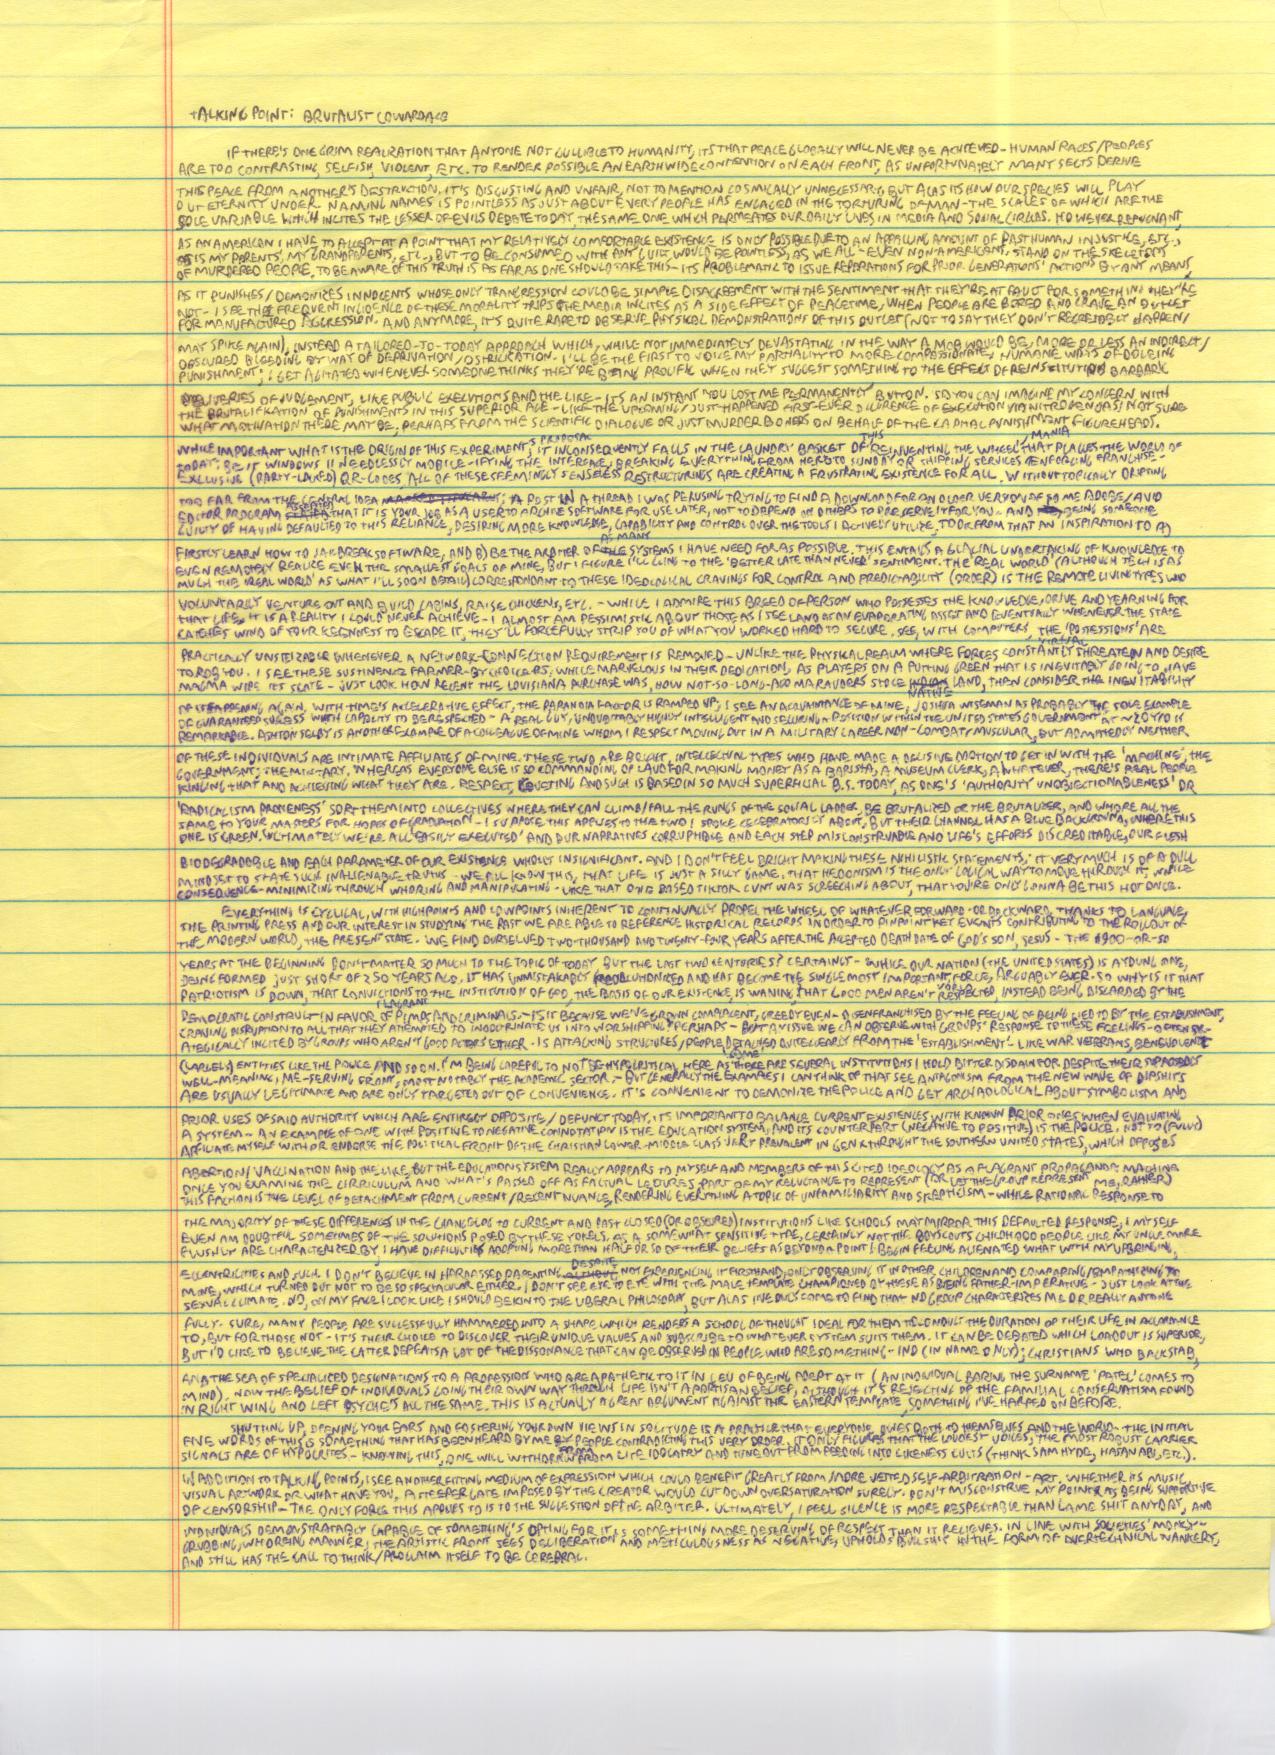 TALKING POINT: BRUTALIST COWARDACE
IF THERE'S ONE GRIM REALIZATION THAT ANYONE NOT GULLIBLE TO HUMANITY, ITS THAT PEACE GLOBALLY WILL NEVER BE ACHIEVED - HUMAN RACES/PEOPLES
ARE TOO CONTRASTING, SELFISH, VIOLENT, ETC. TO RENDER POSSIBLE AN EARTHWIDE CONVENTION ON EACH FRONT, AS UNFORTUNATELY MANY SECTS DERIVE
THIS PEACE FROM ANOTHER'S DESTRUCTION. IT'S DISGUSTING AND UNFAIR, NOT TO MENTION COSMICALLY UNNECESSARY, BUT ALAS ITS HOW OUR SPECIES WILL PLAY
OUT ETERNITY UNDER. NAMING NAMES IS POINTLESS AS JUST ABOUT EVERY PEOPLE HAS ENGAGED IN THE TORTURING OF MAN - THE SCALES OF WHICH ARE THE
SOLE VARIABLE WHICH INCITES THE LESSER OF EVILS DEBATE TODAY, THE SAME ONE WHICH PERMEATES OUR DAILY LIVES IN MEDIA AND SOCIAL CIRCLES. HOWEVER REPUGNANT,
AS AN AMERICAN I HAVE TO ACCEPT AT A POINT THAT MY RELATIVELY COMFORTABLE EXISTENCE IS ONLY POSSIBLE DUE TO AN APPALLING AMOUNT OF PAST HUMAN INJUSTICE, ETC.,
AS IS MY PARENTS', MY GRANDPARENTS, ETC., BUT TO BE CONSUMED WITH ANY GUILT WOULD BE POINTLESS, AS WE ALL - EVEN NON-AMERICANS, STAND ON THE SKELETONS
OF MURDERED PEOPLE, TO BE AWARE OF THIS TRUTH IS AS FAR AS ONE SHOULD TAKE THIS - ITS PROBLEMATIC TO ISSUE REPARATIONS FOR PRIOR GENERATIONS' ACTIONS BY ANY MEANS
AS IT PUNISHES/DEMONIZES INNOCENTS WHOSE ONLY TRANGRESSION COULD BE SIMPLE DISAGREEMENT WITH THE SENTIMENT THAT THEY'RE AT FAULT FOR SOMETHING THEY'RE
NOT - I SEE THE FREQUENT INCIDENCE OF THESE MORALITY TRIPS THE MEDIA INCITES AS A SIDE EFFECT OF PEACETIME, WHEN PEOPLE ARE BORED AND CRAVE AN OUTLET
FOR MANUFACTURED AGGRESSION. AND ANYMORE, IT'S QUITE RARE TO OBSERVE PHYSICAL DEMONSTRATIONS OF THIS OUTLET (NOT TO SAY THEY DON'T REGREDABLY HAPPEN/
MAY SPIKE AGAIN), INSTEAD A TAILORED-TO-TODAY APPROACH WHICH, WHILE NOT IMMEDIATELY DEVASTATING IN THE WAY A MOB WOULD BE, MORE OR LESS AN INDIRECT/
OBSCURED BLEEDING BY WAY OF DEPRIVATION/OSTRICIZATION - I'LL BE THE FIRST TO VOICE MY PARTIALITY TO MORE COMPASSIONATE, HUMANE WAYS OF DOLEING
PUNISHMENT; I GET AGITATED WHENEVER SOMEONE THINKS THEY'RE BEING PROLIFIC WHEN THEY SUGGEST SOMETHING TO THE EFFECT OF REINSTITUTING BARBARIC
DELIVERIES OF JUDGEMENT, LIKE PUBLIC EXECUTIONS AND THE LIKE - ITS AN INSTANT 'YOU LOST ME PERMANENTLY' BUTTON. SO YOU CAN IMAGINE MY CONCERN WITH
THE BRUTALIFIKATION OF PUNISHMENTS IN THIS SUPERIOR AGE - LIKE THE UPCOMING/JUST HAPPENED FIRST-EVER OCCURENCE OF EXECUTION VIA NITROGEN GAS, NOT SURE
WHAT MOTIVATION THERE MAY BE, PERHAPS FROM THE SCIENTIFIC DIALOGUE OR JUST MURDER BONERS ON BEHALF OF THE CAPITAL PUNISHMENT FIGUREHEADS.
WHILE IMPORTANT WHAT IS THE ORIGIN OF THIS EXPERIMENT'S PROPOSAL, IT INCONSEQUENTLY FALLS IN THE LAUNDRY BASKET OF THIS 'REINVENTING THE WHEEL' MANIA THAT PLAGUES THE WORLD OF
TODAY; BE IT WINDOWS 11 NEEDLESSLY MOBILE-IFYING THE INTERFACE, BREAKING EVERYTHING FROM HERE TO SUNDAY OR SHIPPING SERVICES ENFORCING FRANCHISE-
EXCLUSIVE (PARTY-LOCKED) QR-CODES, ALL OF THESE SEEMINGLY SENSELESS RESTRUCTURINGS ARE CREATING A FRUSTRATING EXISTENCE FOR ALL. WITHOUT TOPICALLY DRIFTING
TOO FAR FROM THE GENERAL IDEA; A POST IN A THREAD I WAS PERUSING TRYING TO FIND A DOWNLOAD FOR AN OLDER VERSION OF SOME ADOBE/AVID
EDITOR PROGRAM ASSERTED THAT IT IS YOUR JOB AS A USER TO ARCHIVE SOFTWARE FOR USE LATER, NOT TO DEPEND ON OTHERS TO PRESERVE IT FOR YOU - AND BEING SOMEONE
GUILTY OF HAVING DEFAULTED TO THIS RELIANCE, DESIRING MORE KNOWLEDGE, CAPABILITY AND CONTROL OVER THE TOOLS I ACTIVELY UTILIZE, TOOK FROM THAT AN INSPIRATION TO A)
FIRSTLY LEARN HOW TO JAILBREAK SOFTWARE, AND B) BE THE ARBITER OF AS MANY SYSTEMS I HAVE NEED FOR AS POSSIBLE. THIS ENTAILS A GLACIAL UNDERTAKING OF KNOWLEDGE TO
EVEN REMOTELY REALIZE EVEN THE SMALLEST GOALS OF MINE, BUT I FIGURE I'LL CLING TO THE 'BETTER LATE THAN NEVER' SENTIMENT. THE 'REAL WORLD' (ALTHOUGH TECH IS AS
MUCH THE 'REAL WORLD' AS WHAT I'LL SOON DETAIL) CORRESPONDANT TO THESE IDEOLOGICAL CRAVINGS FOR CONTROL AND PREDICTABILITY (ORDER) IS THE REMOTE LIVING TYPES WHO
VOLUNTARILY VENTURE OUT AND BUILD CABINS, RAISE CHICKENS, ETC. - WHILE I ADMIRE THIS BREED OF PERSON WHO POSSESSES THE KNOWLEDGE, DRIVE AND YEARNING FOR
THAT LIFE, IT IS A REALITY I COULD NEVER ACHIEVE - I ALMOST AM PESSIMISTIC ABOUT THOSE AS I SEE LAND AS AN EVAPORATING ASSET AND EVENTUALLY WHENEVER THE STATE
CATCHES WIND OF YOUR KEENNESS TO ESCAPE IT, THEY'LL FORCEFULLY STRIP YOU OF WHAT YOU WORKED HARD TO SECURE. SEE, WITH COMPUTERS, THE VIRTUAL 'POSSESSIONS' ARE
PRACTICALLY UNSEIZABLE WHENEVER A NETWORK-CONNECTION REQUIREMENT IS REMOVED - UNLIKE THE PHYSICAL REALM WHERE FORCES CONSTANTLY THREATEN AND DESIRE
TO ROB YOU. I SEE THESE SUSTINENCE FARMER-BY CHOICERS, WHILE MARVELOUS IN THEIR DEDICATION, AS PLAYERS ON A PUTTING GREEN THAT IS INEVITABLY GOING TO HAVE
MAGMA WIPE ITS SLATE - JUST LOOK HOW RECENT THE LOUISIANA PURCHASE WAS, HOW NOT-SO-LONG-AGO MARAUDERS STOLE NATIVE LAND, THEN CONSIDER THE INEVITABILITY
OF IT HAPPENING AGAIN, WITH TIME'S ACCELERATIVE EFFECT, THE PARANOIA FACTOR IS RAMPED UP; I SEE AN ACQUAINTANCE OF MINE, JOSHUA WISEMAN AS PROBABLY THE SOLE EXAMPLE
OF GUARANTEED SUCCESS WITH CAPACITY TO BE RESPECTED - A REAL GUY, UNDOUBTABLY HIGHLY INTELLIGENT AND SECURING A POSITION WITHIN THE UNITED STATES GOVERNMENT AT ~20 Y/O IS
REMARKABLE. ASHTON SELBY IS ANOTHER EXAMPLE OF A COLLEAGUE OF MINE WHOM I RESPECT MOVING OUT IN A MILITARY CAREER NON-COMBAT/MUSCULAR, BUT ADMITTEDLY NEITHER
OF THESE INDIVIDUALS ARE INTIMATE AFFILIATES OF MINE. THESE TWO ARE BRIGHT, INTELLECTUAL TYPES WHO HAVE MADE A DECISIVE MOTION TO GET IN WITH THE 'MACHINE', THE
GOVERNMENT; THE MILITARY. WHEREAS EVERYONE ELSE IS SO COMMANDING OF LAUD FOR MAKING MONEY AS A BARISTA, A MUSEUM CLERK, A WHATEVER, THERE'S REAL PEOPLE
KINGING THAT AND ACHIEVING WHAT THEY ARE. RESPECT, COVETING AND SUCH IS BASED IN SO MUCH SUPERFICIAL B.S. TODAY, AS ONE'S 'AUTHORITY UNOBJECTIONABLENESS' OR
'RADICALISM PRONENESS' SORT THEM INTO COLLECTIVES WHERE THEY CAN CLIMB/FALL THE RUNGS OF THE SOCIAL LADDER, BE BRUTALIZED OR THE BRUTALIZER, AND WHORE ALL THE
SAME TO YOUR MASTERS FOR HOPES OF GRADATION - I SUPPOSE THIS APPLIES TO THE TWO I SPOKE CELEBRATORILY ABOUT, BUT THEIR CHANNEL HAS A BLUE BACKGROUND, WHERE THIS
ONE IS GREEN. ULTIMATELY WE'RE ALL 'EASILY EXECUTED' AND OUR NARRATIVES CORRUPTIBLE AND EACH STEP MISCONSTRUABLE AND LIFE'S EFFORTS DISCREDITABLE, OUR FLESH
BIODEGRADABLE AND EACH PARAMETER OF OUR EXISTENCE WHOLLY INSIGNIFICANT. AND I DON'T FEEL BRIGHT MAKING THESE NIHILISTIC STATEMENTS, IT VERY MUCH IS OF A DULL
MINDSET TO STATE SUCH INALIENABLE TRUTHS - WE ALL KNOW THIS, THAT LIFE IS JUST A SILLY GAME, THAT HEDONISM IS THE ONLY LOGICAL WAY TO MOVE THROUGH IT, WHILE
CONSEQUENCE-MINIMIZING THROUGH WHORING AND MANIPULATING - LIKE THAT ONE BASED TIKTOK CUNT WAS SCREECHING ABOUT, THAT YOU'RE ONLY GONNA BE THIS HOT ONCE.
EVERYTHING IS CYCLICAL, WITH HIGHPOINTS AND LOWPOINTS INHERENT TO CONTINUALLY PROPEL THE WHEEL OF WHATEVER FORWARD - OR BACKWARD. THANKS TO LANGUAGE,
THE PRINTING PRESS AND OUR INTEREST IN STUDYING THE PAST WE ARE ABLE TO REFERENCE HISTORICAL RECORDS IN ORDER TO PINPOINT KEY EVENTS CONTRIBUTING TO THE ROLLOUT OF
THE MODERN WORLD, THE PRESENT STATE. WE FIND OURSELVED TWO-THOUSAND AND TWENTY-FOUR YEARS AFTER THE ACCEPTED DEATH DATE OF GOD'S SON, JESUS - THE 1900-OR-SO
YEARS AT THE BEGINNING DON'T MATTER SO MUCH TO THE TOPIC OF TODAY BUT THE LAST TWO CENTURIES? CERTAINLY - WHILE OUR NATION (THE UNITED STATES) IS A YOUNG ONE,
BEING FORMED JUST SHORT OF 250 YEARS AGO, IT HAS UNMISTAKABLY REVOLUTIONIZED AND HAS BECOME THE SINGLE MOST IMPORTANT FORCE, ARGUABLY EVER - SO WHY IS IT THAT
PATRIOTISM IS DOWN, THAT CONVICTIONS TO THE INSTITUTION OF GOD, THE BASIS OF OUR EXISTENCE, IS WANING, THAT GOOD MEN AREN'T RESPECTED, INSTEAD BEING DISCARDED BY THE
DEMOCRATIC CONSTRUCT IN FAVOR OF FLAGRANT PIMPS AND CRIMINALS. - IS IT BECAUSE WE'VE GROWN COMPLACENT, GREEDY EVEN - DISENFRANCHISED BY THE FEELING OF BEING LIED TO BY THE ESTABLISHMENT,
CRAVING DISRUPTION TO ALL THAT THEY ATTEMPTED TO INDOCTRINATE US INTO WORSHIPPING? PERHAPS - BUT AN ISSUE WE CAN OBSERVE WITH GROUPS' RESPONSE TO THESE FEELINGS - OFTEN STR-
ATEGICALLY INCITED BY GROUPS WHO AREN'T GOOD ACTORS EITHER - IS ATTACKING STRUCTURES/PEOPLE DETACHED QUITE CLEARLY FROM THE 'ESTABLISHMENT' - LIKE WAR VETERANS, BENEVOLENT
(LARGELY) ENTITIES LIKE THE POLICE AND SO ON. I'M BEING CAREFUL TO NOT BE HYPOCRITICAL HERE AS THERE ARE SEVERAL INSTITUTIONS I HOLD BITTER DISDAIN FOR DESPITE THEIR SUPPOSEDLY
WELL-MEANING, ME-SERVING FRONT, MOST NOTABLY THE ACADEMIC SECTOR. - BUT GENERALLY THE EXAMPLES I CAN THINK OF THAT SEE ANTAGONISM FROM THE NEW WAVE OF DIPSHITS
ARE USUALLY LEGITIMATE AND ARE ONLY TARGETED OUT OF CONVENIENCE. IT'S CONVENIENT TO DEMONIZE THE POLICE AND GET ARCHAOLOGICAL ABOUT SYMBOLISM AND
PRIOR USES OF SAID AUTHORITY WHICH ARE ENTIRELY OPPOSITE/DEFUNCT TODAY, ITS IMPORTANT TO BALANCE CURRENT EXISTENCES WITH KNOWN PRIOR ONES WHEN EVALUATING
A SYSTEM - AN EXAMPLE OF ONE WITH POSITIVE TO NEGATIVE CONNOTATION IS THE EDUCATION SYSTEM, AND ITS COUNTERPART (NEGATIVE TO POSITIVE) IS THE POLICE. NOT TO (FULLY)
AFFILIATE MYSELF WITH OR ENDORSE THE POLITICAL FRONT OF THE CHRISTIAN LOWER-MIDDLE CLASS VERY PREVALENT IN GEN X THROUGHT THE SOUTHERN UNITED STATES, WHICH OPPOSES
ABORTION/VACCINATION AND THE LIKE, BUT THE EDUCATION SYSTEM REALLY APPEARS TO MYSELF AND MEMBERS OF THIS CITED IDEOLOGY AS A FLAGRANT PROPAGANDA MACHINE
ONCE YOU EXAMINE THE CIRRICULUM AND WHAT'S PASSED OFF AS FACTUAL LECTURES. PART OF MY RELUCTANCE TO REPRESENT (OR LET THE GROUP REPRESENT ME, RATHER)
THIS FACTION IS THE LEVEL OF DETACHMENT FROM CURRENT/RECENT NUANCE, RENDERING EVERYTHING A TOPIC OF UNFAMILIARITY AND SKEPTICISM - WHILE RATIONAL RESPONSE TO
THE MAJORITY OF THESE DIFFERENCES IN THE CHANGELOG TO CURRENT AND PAST CLOSED (OR OBSCURED) INSTITUTIONS LIKE SCHOOLS MAY MIRROR THIS DEFAULTED RESPONSE, I MYSELF
EVEN AM DOUBTFUL SOMETIMES OF THE SOLUTIONS POSED BY THESE YOKELS. AS A SOMEWHAT SENSITIVE TYPE, CERTAINLY NOT THE BOYSCOUTS CHILDHOOD PEOPLE LIKE MY UNCLE MORE
FLUSHLY ARE CHARACTERIZED BY, I HAVE DIFFICULTIES ADOPTING MORE THAN HALF OR SO OF THEIR BELIEFS AS BEYOND A POINT I BEGIN FEELING ALIENATED WHAT WITH MY UPBRINGING,
ECCENTRICITIES AND SUCH. I DON'T BELIEVE IN HARDASSED PARENTING DESPITE NOT EXPERIENCING IT FIRSTHAND, ONLY OBSERVING IT IN OTHER CHILDREN AND COMPARING/EMPATHIZING TO
MINE, WHICH TURNED OUT NOT TO BE SO SPECTACULAR EITHER. I DON'T SEE EYE TO EYE WITH THE MALE TEMPLATE CHAMPIONED BY THESE AS BEING FATHER-IMPERATIVE - JUST LOOK AT THE
SEXUAL CLIMATE. NO, ON MY FACE I LOOK LIKE I SHOULD BE KIN TO THE LIBERAL PHILOSOPHY, BUT ALAS IVE DULY COME TO FIND THAT NO GROUP CHARACTERIZES ME OR REALLY ANYONE
FULLY - SURE, MANY PEOPLE ARE SUCCESSFULLY HAMMERED INTO A SHAPE WHICH RENDERS A SCHOOL OF THOUGHT IDEAL FOR THEM TO CONDUCT THE DURATION OF THEIR LIFE IN ACCORDANCE
TO, BUT FOR THOSE NOT - IT'S THEIR CHOICE TO DISCOVER THEIR UNIQUE VALUES AND SUBSCRIBE TO WHATEVER SYSTEM SUITS THEM. IT CAN BE DEBATED WHICH LOADOUT IS SUPERIOR,
BUT I'D LIKE TO BELIEVE THE LATTER DEFEATS A LOT OF THE DISSONANCE THAT CAN BE OBSERVED IN PEOPLE WHO ARE SOMETHING-INO (IN NAME ONLY); CHRISTIANS WHO BACKSTAB,
AND THE SEA OF SPECIALIZED DESIGNATIONS TO A PROFESSION WHO ARE APATHETIC TO IT IN LEU OF BEING ADEPT AT IT (AN INDIVIDUAL BARING THE SURNAME 'PATEL' COMES TO
MIND). NOW THE BELIEF OF INDIVIDUALS GOING THEIR OWN WAY THROUGH LIFE ISN'T A PARTISAN BELIEF, ALTHOUGH IT'S REJECTING OF THE FAMILIAL CONSERVATISM FOUND
IN RIGHT WING AND LEFT PSYCHE'S ALL THE SAME. THIS IS ACTUALLY A GREAT ARGUMENT AGAINST THE EASTERN TEMPLATE, SOMETHING I'VE HARPED ON BEFORE.
SHUTTING UP, OPENING YOUR EARS AND FOSTERING YOUR OWN VIEWS IN SOLITUDE IS A PRACTICE THAT EVERYONE OWES BOTH TO THEMSELVES AND THE WORLD - THE INITIAL
FIVE WORDS OF THIS IS SOMETHING THAT HAS BEEN HEARD BY ME FROM PEOPLE CONTRADICTING THIS VERY ORDER. IT ONLY FIGURES THAT THE LOUDEST VOICES, THE MOST ROBUST CARRIER
SIGNALS ARE OF HYPOCRITES - KNOWING THIS, ONE WILL WITHDRAW FROM LIFE IDOLATRY AND TUNE OUT FROM FEEDING INTO LIKENESS CULTS (THINK SAM HYDE, HASANABI, ETC.).
IN ADDITION TO TALKING POINTS, I SEE ANOTHER FITTING MEDIUM OF EXPRESSION WHICH COULD BENEFIT GREATLY FROM /MORE VETTED SELF-ARBITRATION - ART. WHETHER ITS MUSIC,
VISUAL ARTWORK OR WHAT HAVE YOU, A STEEPER GATE IMPOSED BY THE CREATOR WOULD CUT DOWN OVERSATURATION SURELY. DON'T MISCONSTRUE MY POINTS AS BEING SUPPORTIVE
OF CENSORSHIP - THE ONLY FORCE THIS APPLIES TO IS TO THE SUGGESTION OF THE ARBITER. ULTIMATELY, I FEEL SILENCE IS MORE RESPECTABLE THAN LAME SHIT ANYDAY, AND
INDIVIDUALS DEMONSTRATABLY CAPABLE OF SOMETHING'S OPTING FOR IT IS SOMETHING MORE DESERVING OF RESPECT THAN IT RELIEVES. IN LINE WITH SOCIETIES' MONEY-
GRUBBING, WHORING MANNER, THE ARTISTIC FRONT SEES DELIBERATION AND METICULOUSNESS AS NEGATIVE, UPHOLDS BULLSHIP IN THE FORM OF OVERTECHNICAL WANKERY,
AND STILL HAS THE GALL TO THINK/PROCLAIM ITSELF TO BE CEREBRAL.